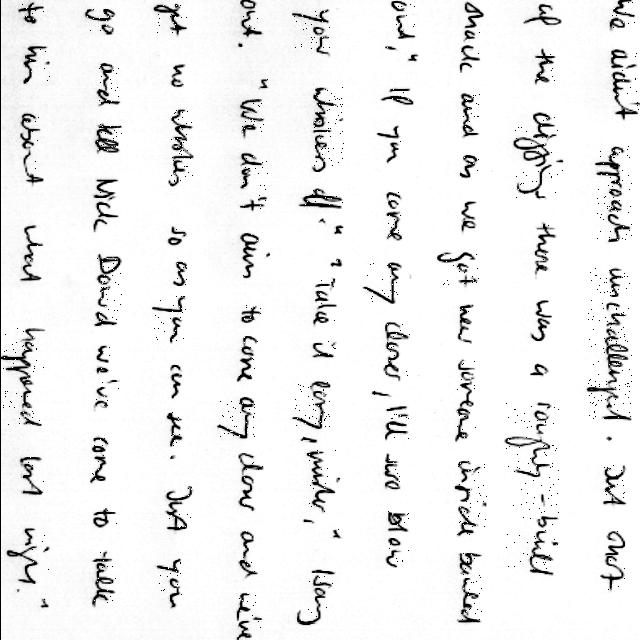 We didn't approach unchallenged. Just short
of the diggings there was a roughly-built
shack and as we got near someone inside bawled
out," If you come any closer, I'll sure blow
your whiskers off." "Take it easy, mister," Hany
out. "We don't aim to come any closer and we've
got no whiskers so as you can see. Just you
go and tell Nick Dowd we've come to talk
to him about what happened last night."